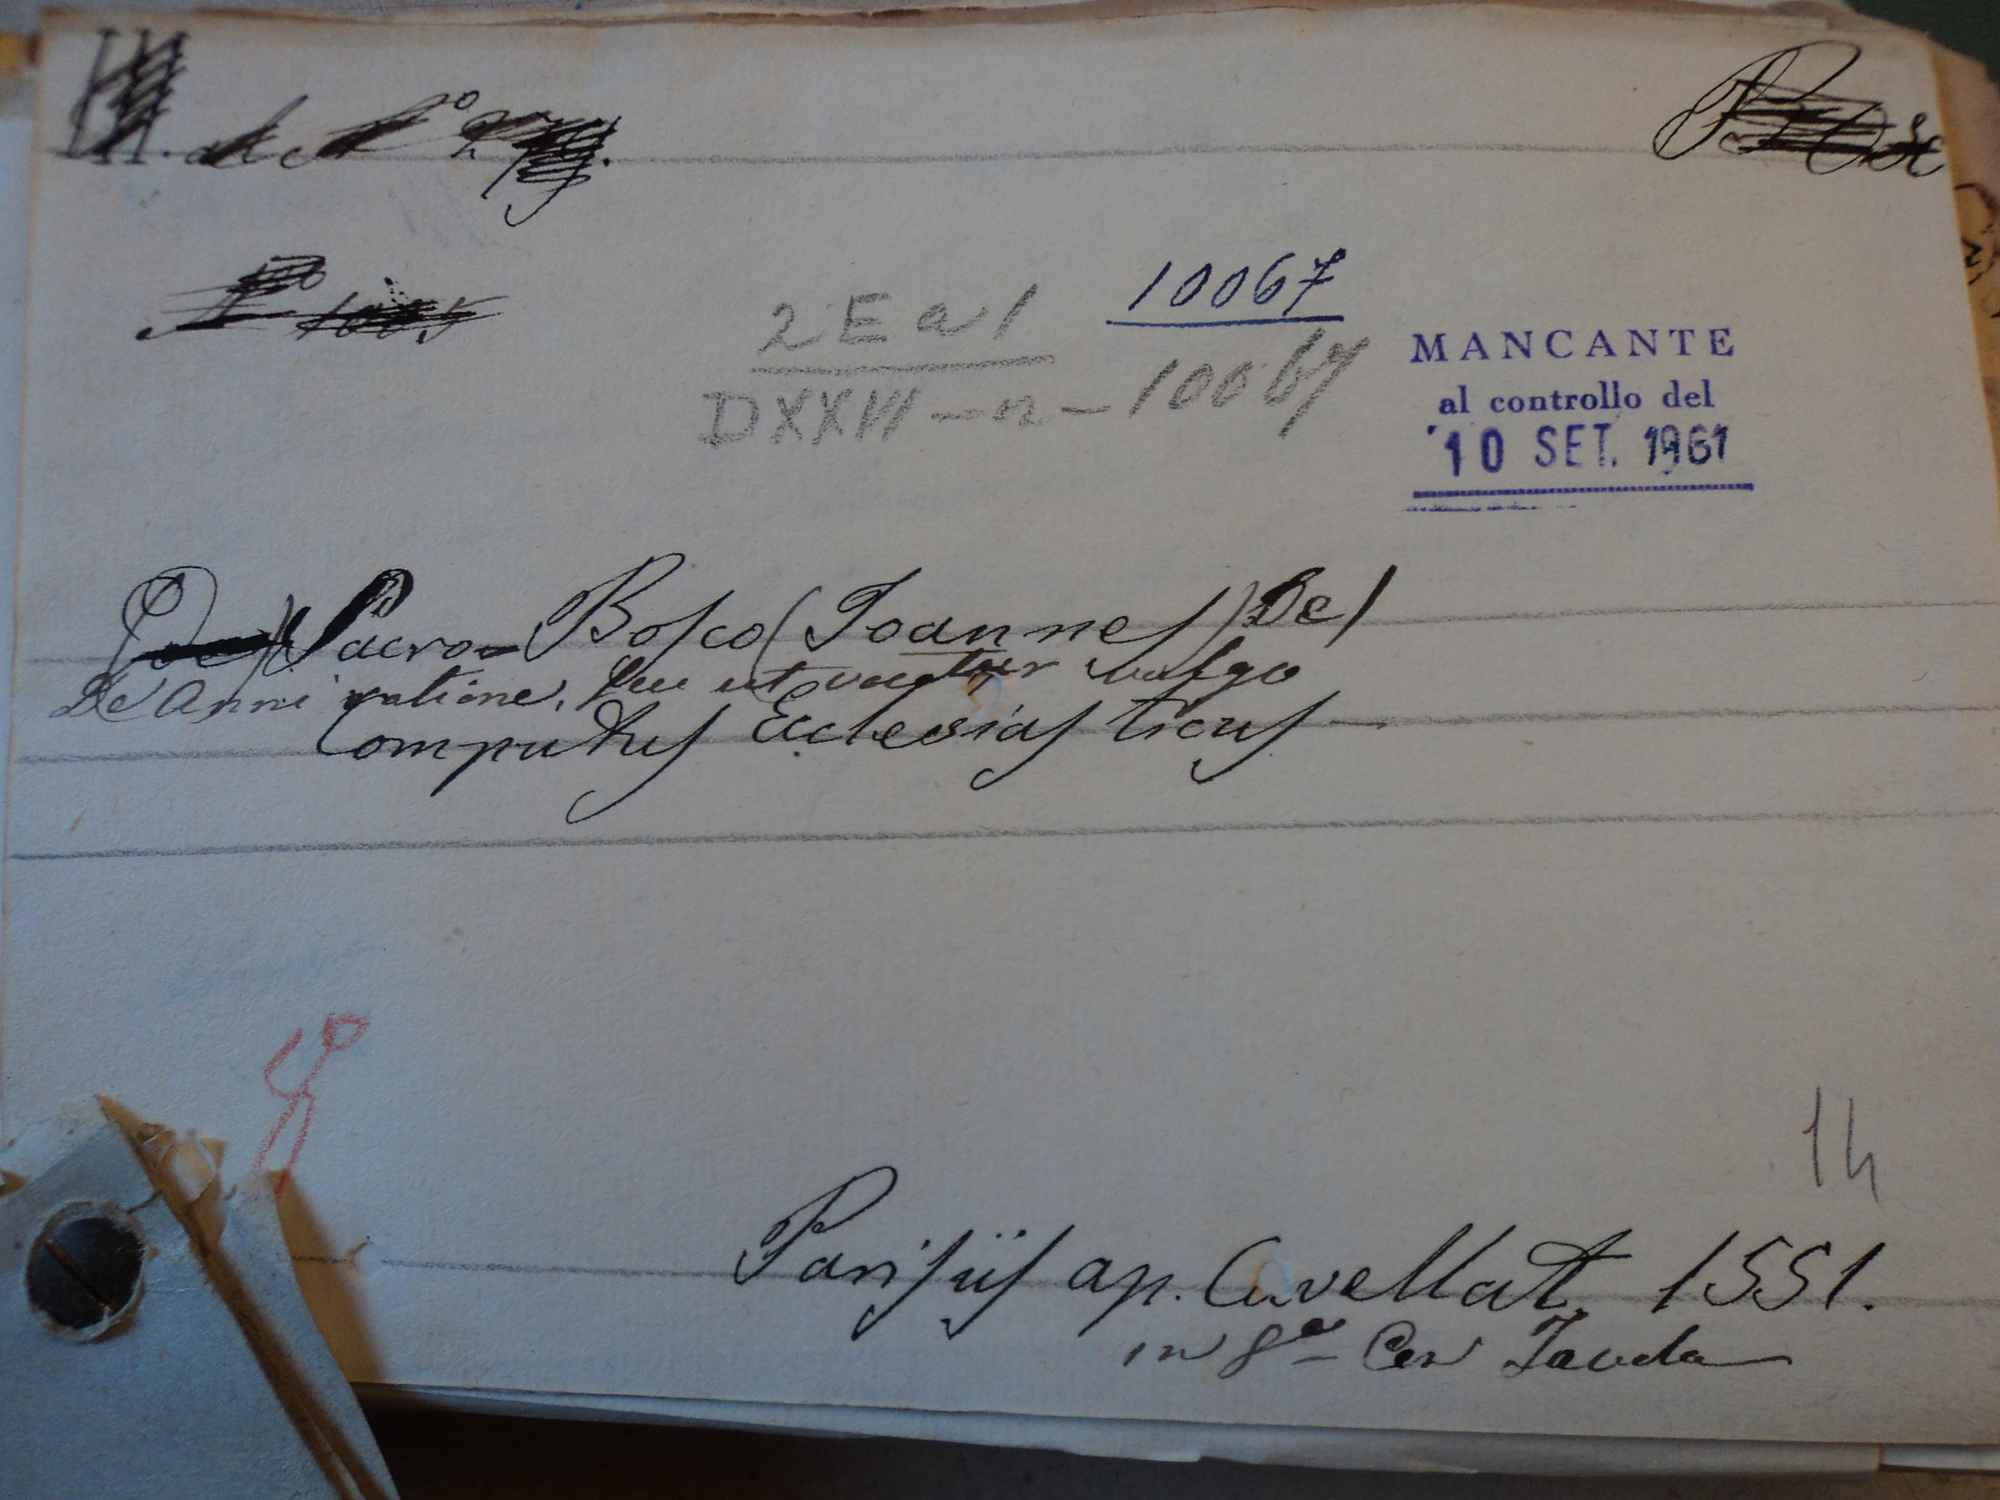 10067
2 E a 1
MANCANTE
al controllo del
10 SET. 1961
D XXVII - n - 10067
Sacro Bosco (Joannes) De)
De Anni ratione, seu ut vocatur vulgo
Computus Ecclesiasticus —
14
Parisiis ap. Cavellat. 1551.
in 8° - Con Tavola